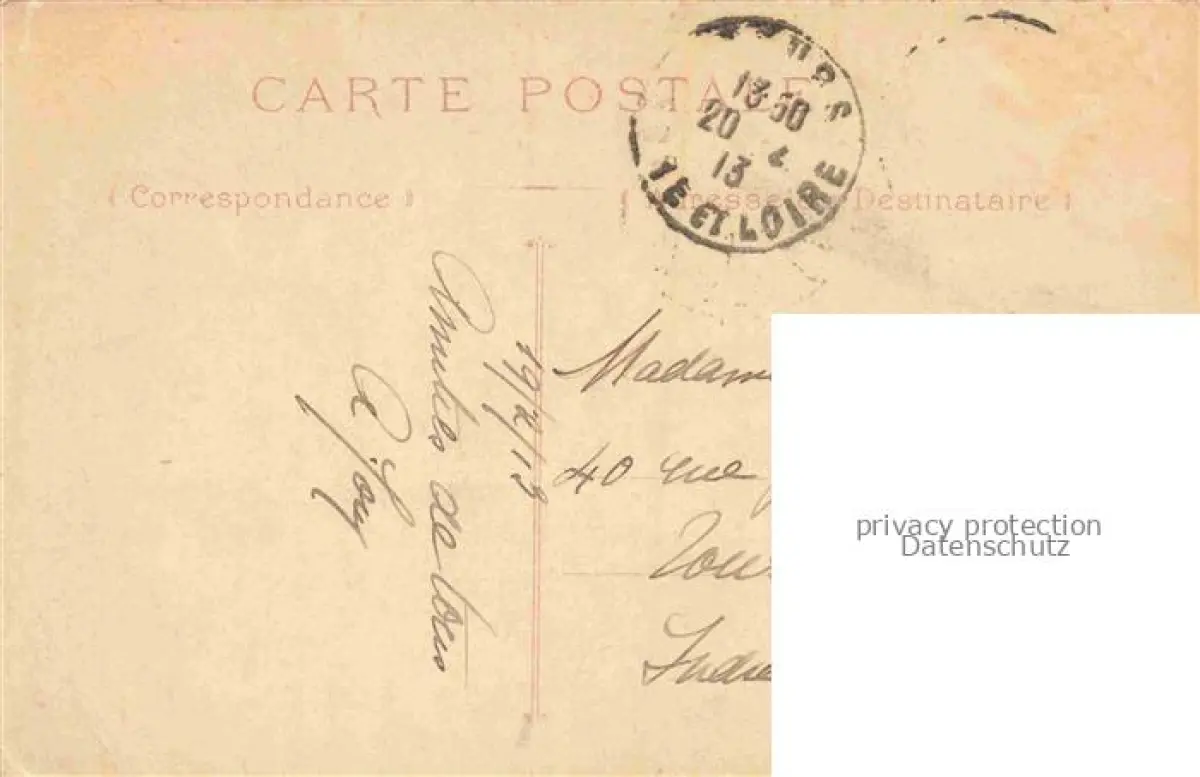 CARTE POSTALE
(Correspondance)
Destinataire)
13·50
20
13
ET LOIRE
Amitiés de tous
19/2/13
Madam
40 rue
Tou
Indre
privacy protection
Datenschutz